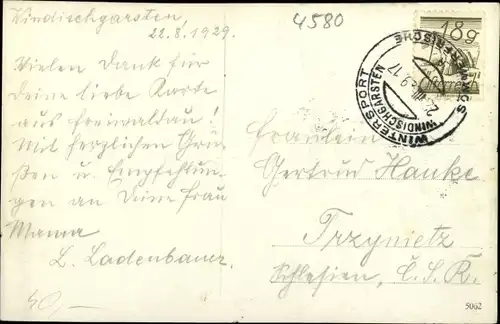 Windischgarsten,
22.8.1929.
Vielen Dank für
Deine liebe Karte
aus Freiwaldau!
Mit herzlichen Grü-
ßen u. Empfehlun-
gen an Deine Frau
Mama
L. Ladenbauer.
4580
18g
WINTERSPORT
WINDISCHGARSTEN
Fräulein
Gertrud Hanke
Trzynietz
Schlesien, Č.S.R.
5062